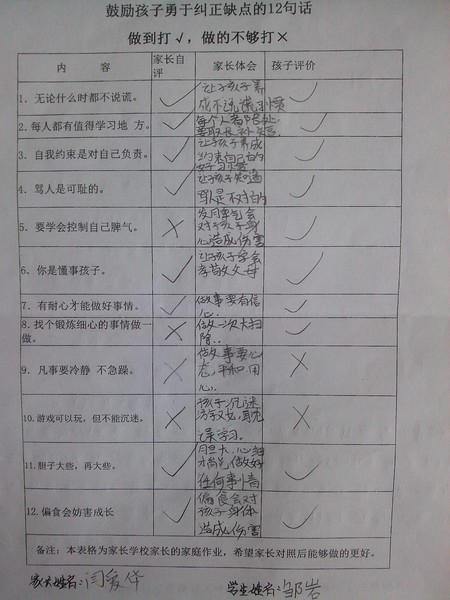 鼓励孩子勇于纠正缺点的12句话
做到打√，做的不够打×
内 容 家长自评 家长体会 孩子评价
1、无论什么时都不说谎。 ✓ 让孩子养 ✓
成不说谎习惯
2.每人都有值得学习地 方。 ✓ 每个人都有长处, ✓
要取长补短
3、自我约束是对自己负责。 ✓ 让孩子养成 ✓
约束自己的
好习惯
4、骂人是可耻的。 ✓ 让孩子知道 ✓
骂人是不对的
5、要学会控制自己脾气。 × 发周脾气会 ✓
对孩子身
心造成伤害
6、你是懂事孩子。 ✓ 让孩子学会 ✓
孝敬父母
7、有耐心才能做好事情。 ✓ 做事要有信 ✓
心.
8、找个锻炼细心的事情做一 × 做一次大扫 ✓
做。 除..
9、凡事要冷静 不急躁。 × 做事要心 ×
态,平和,用
心.
10.游戏可以玩，但不能沉迷。 × 孩子沉迷 ×
学习.
11.胆子大些，再大些。 ✓ 胆大,心细 ✓
才能做好
任何事情
12.偏食会妨害成长 ✓ 偏食会对 ✓
孩子身体
造成伤害
备注：本表格为家长学校家长的家庭作业，希望家长对照后能够做的更好。
家长姓名:闫爱华 学生姓名:邹岩